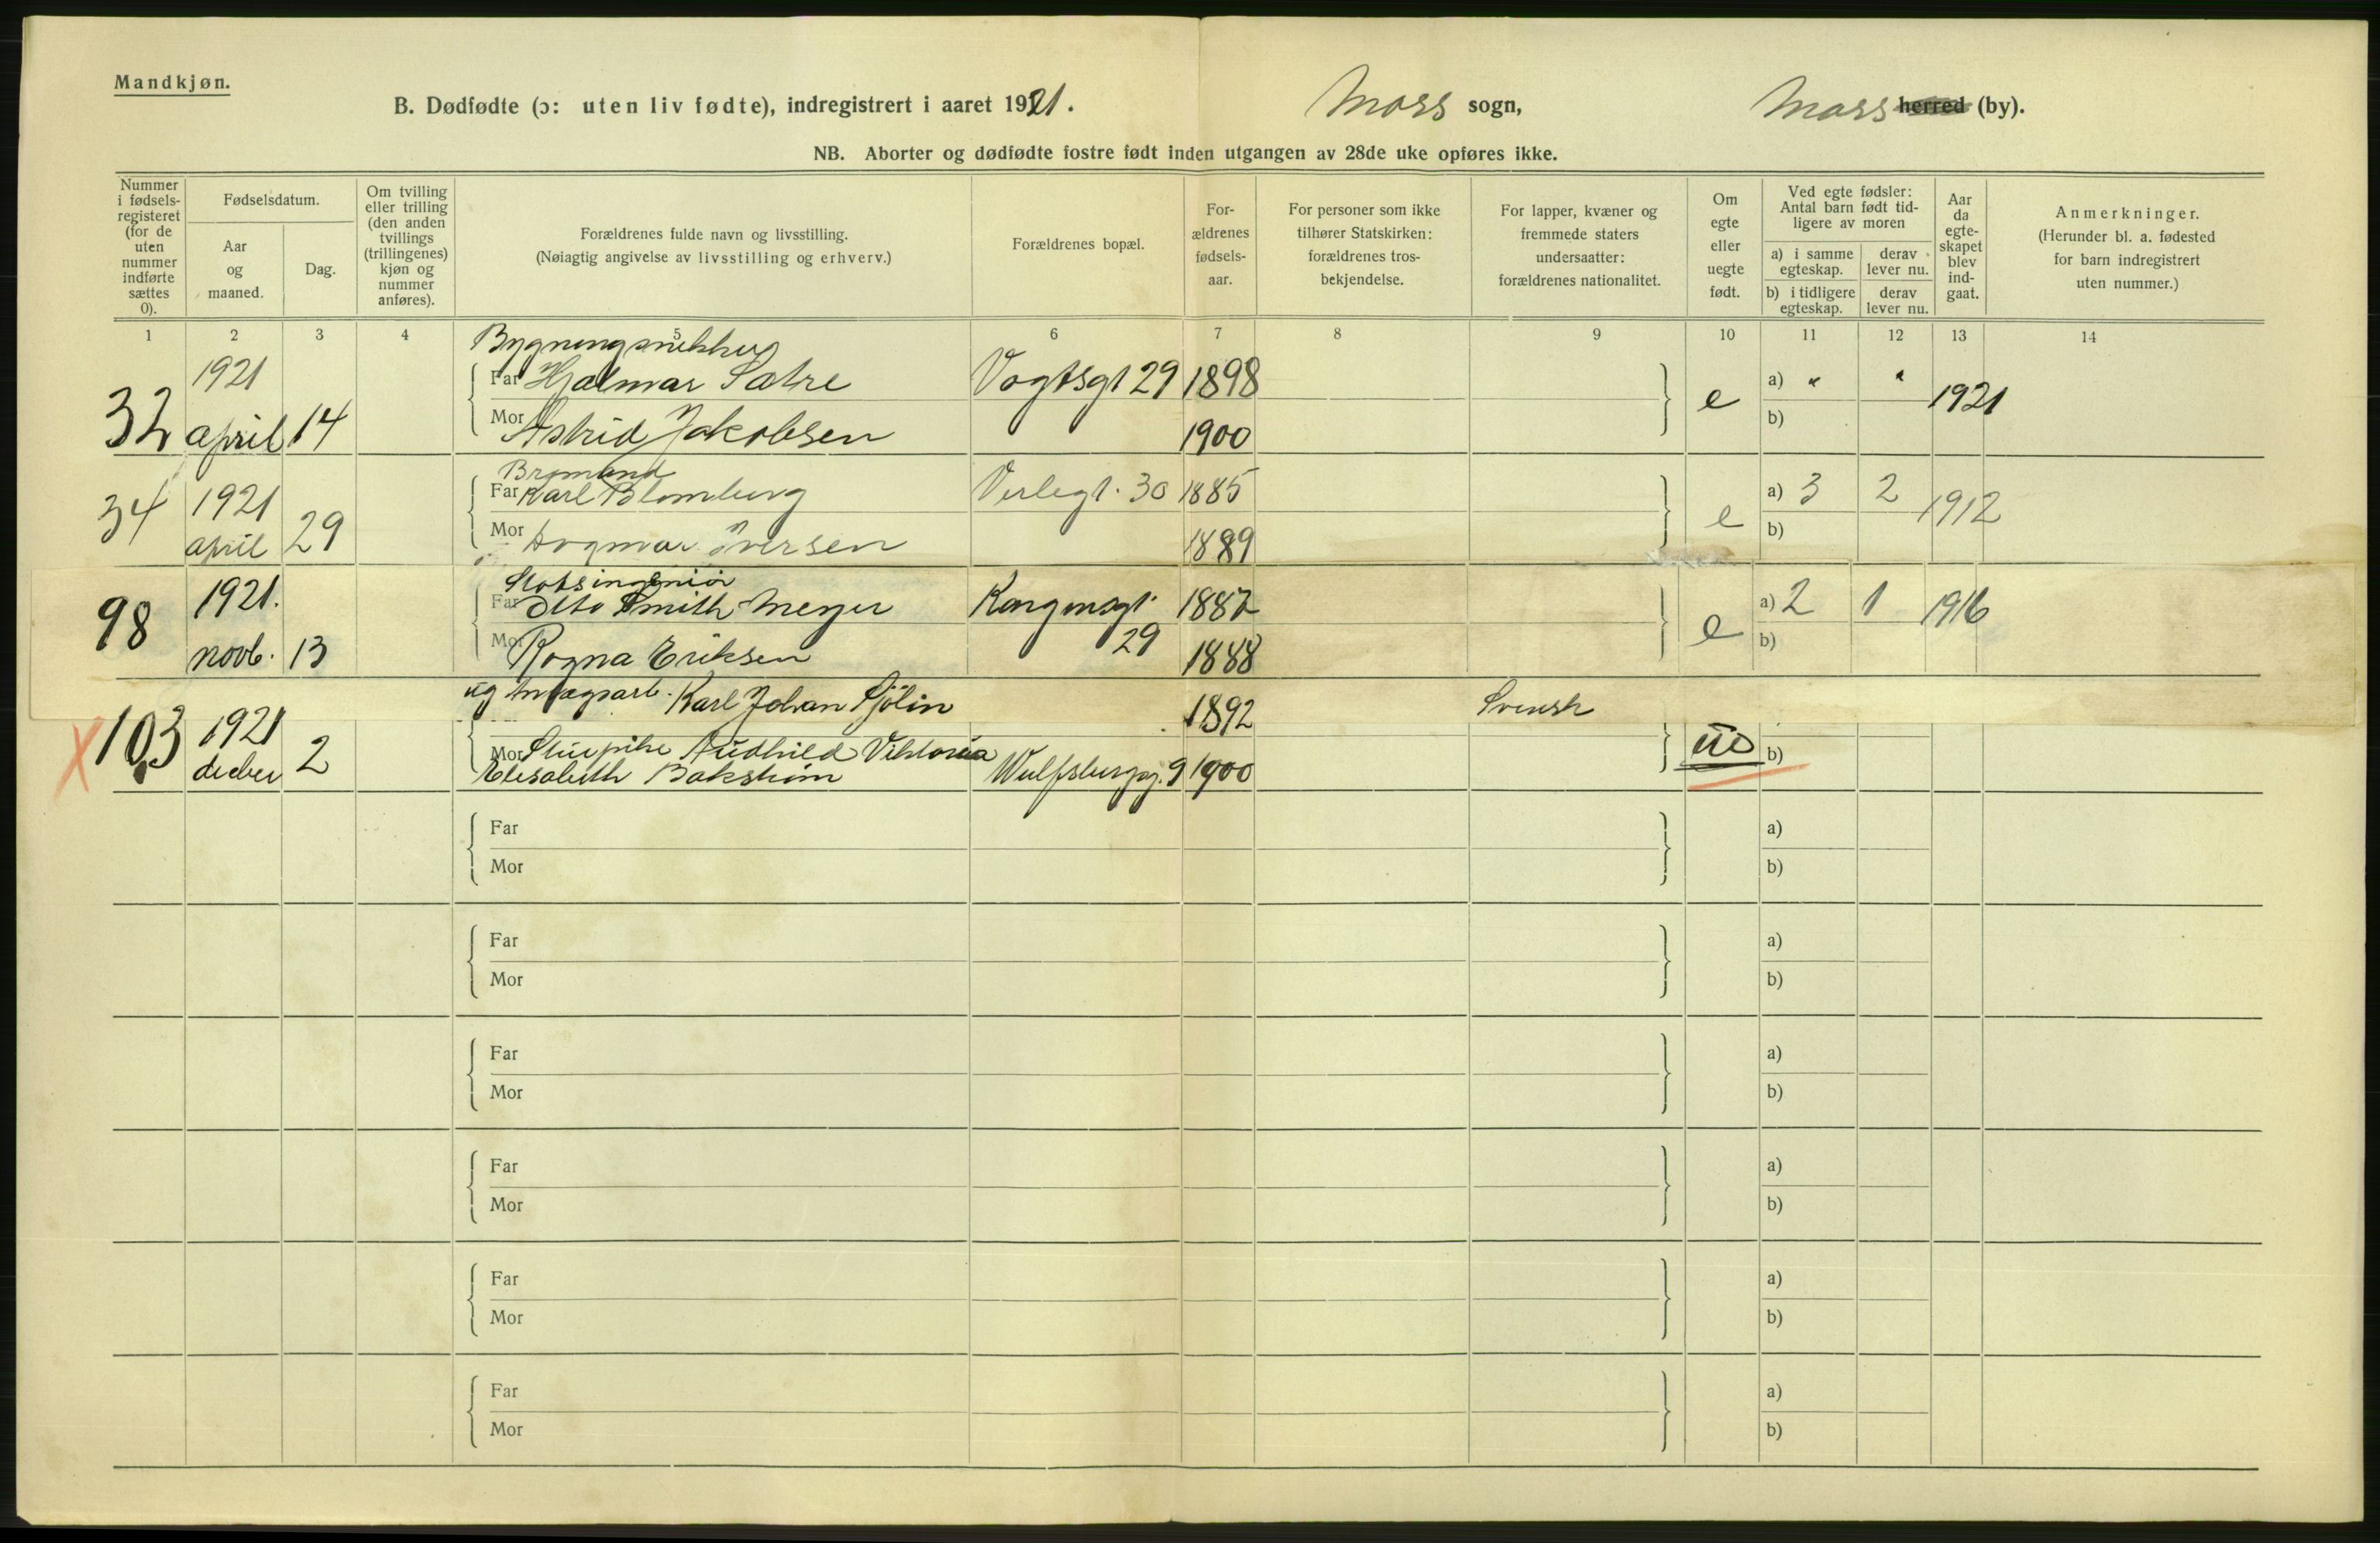 Mandkjøn.
B. Dødfødte (ɔ: uten liv fødte), indregistrert i aaret 1921. Moss sogn, Moss herred (by).
NB. Aborter og dødfødte fostre født inden utgangen av 28de uke opføres ikke.
Nummer i fødsels-registeret (for de uten nummer indførte sættes 0).
Fødselsdatum.
Aar og maaned.
Dag.
Om tvilling eller trilling (den anden tvillings (trillingenes) kjøn og nummer anføres).
Forældrenes fulde navn og livsstilling.
(Nøiagtig angivelse av livsstilling og erhverv.)
Forældrenes bopæl.
For-ældrenes fødsels-aar.
For personer som ikke tilhører Statskirken: forældrenes tros-bekjendelse.
For lapper, kvæner og fremmede staters undersaatter: forældrenes nationalitet.
Om egte eller uegte født.
Ved egte fødsler: Antal barn født tid-ligere av moren
a) i samme egteskap.
derav lever nu.
b) i tidligere egteskap.
derav lever nu.
Aar da egte-skapet blev ind-gaat.
Anmerkninger.
(Herunder bl. a. fødested for barn indregistrert uten nummer.)
1 2 3 4 5 6 7 8 9 10 11 12 13 14
1921
Far Hjalmar Sætre Vogtsgt 29 1898 e a) " " 1921
32 april 14 Mor Astrid Jakobsen 1900 b)
Far Karl Blomberg Verlegt. 30 1885 a) 3 2
34 1921 1912
april 29 Mor Dagmar Iversen 1889 e b)
98 1921. Far Otto Smith Meyer Kongensgt. 1882 a) 2 1 1916
novb. 13 Mor Ragna Eriksen 29 1888 e b)
ug Karl Johan Sjölin 1892 Svensk
X 103 1921
decbr 2 Mor Viktoria ue b)
Elisabeth 9 1900
Far a)
Mor b)
Far a)
Mor b)
Far a)
Mor b)
Far a)
Mor b)
Far a)
Mor b)
Far a)
Mor b)